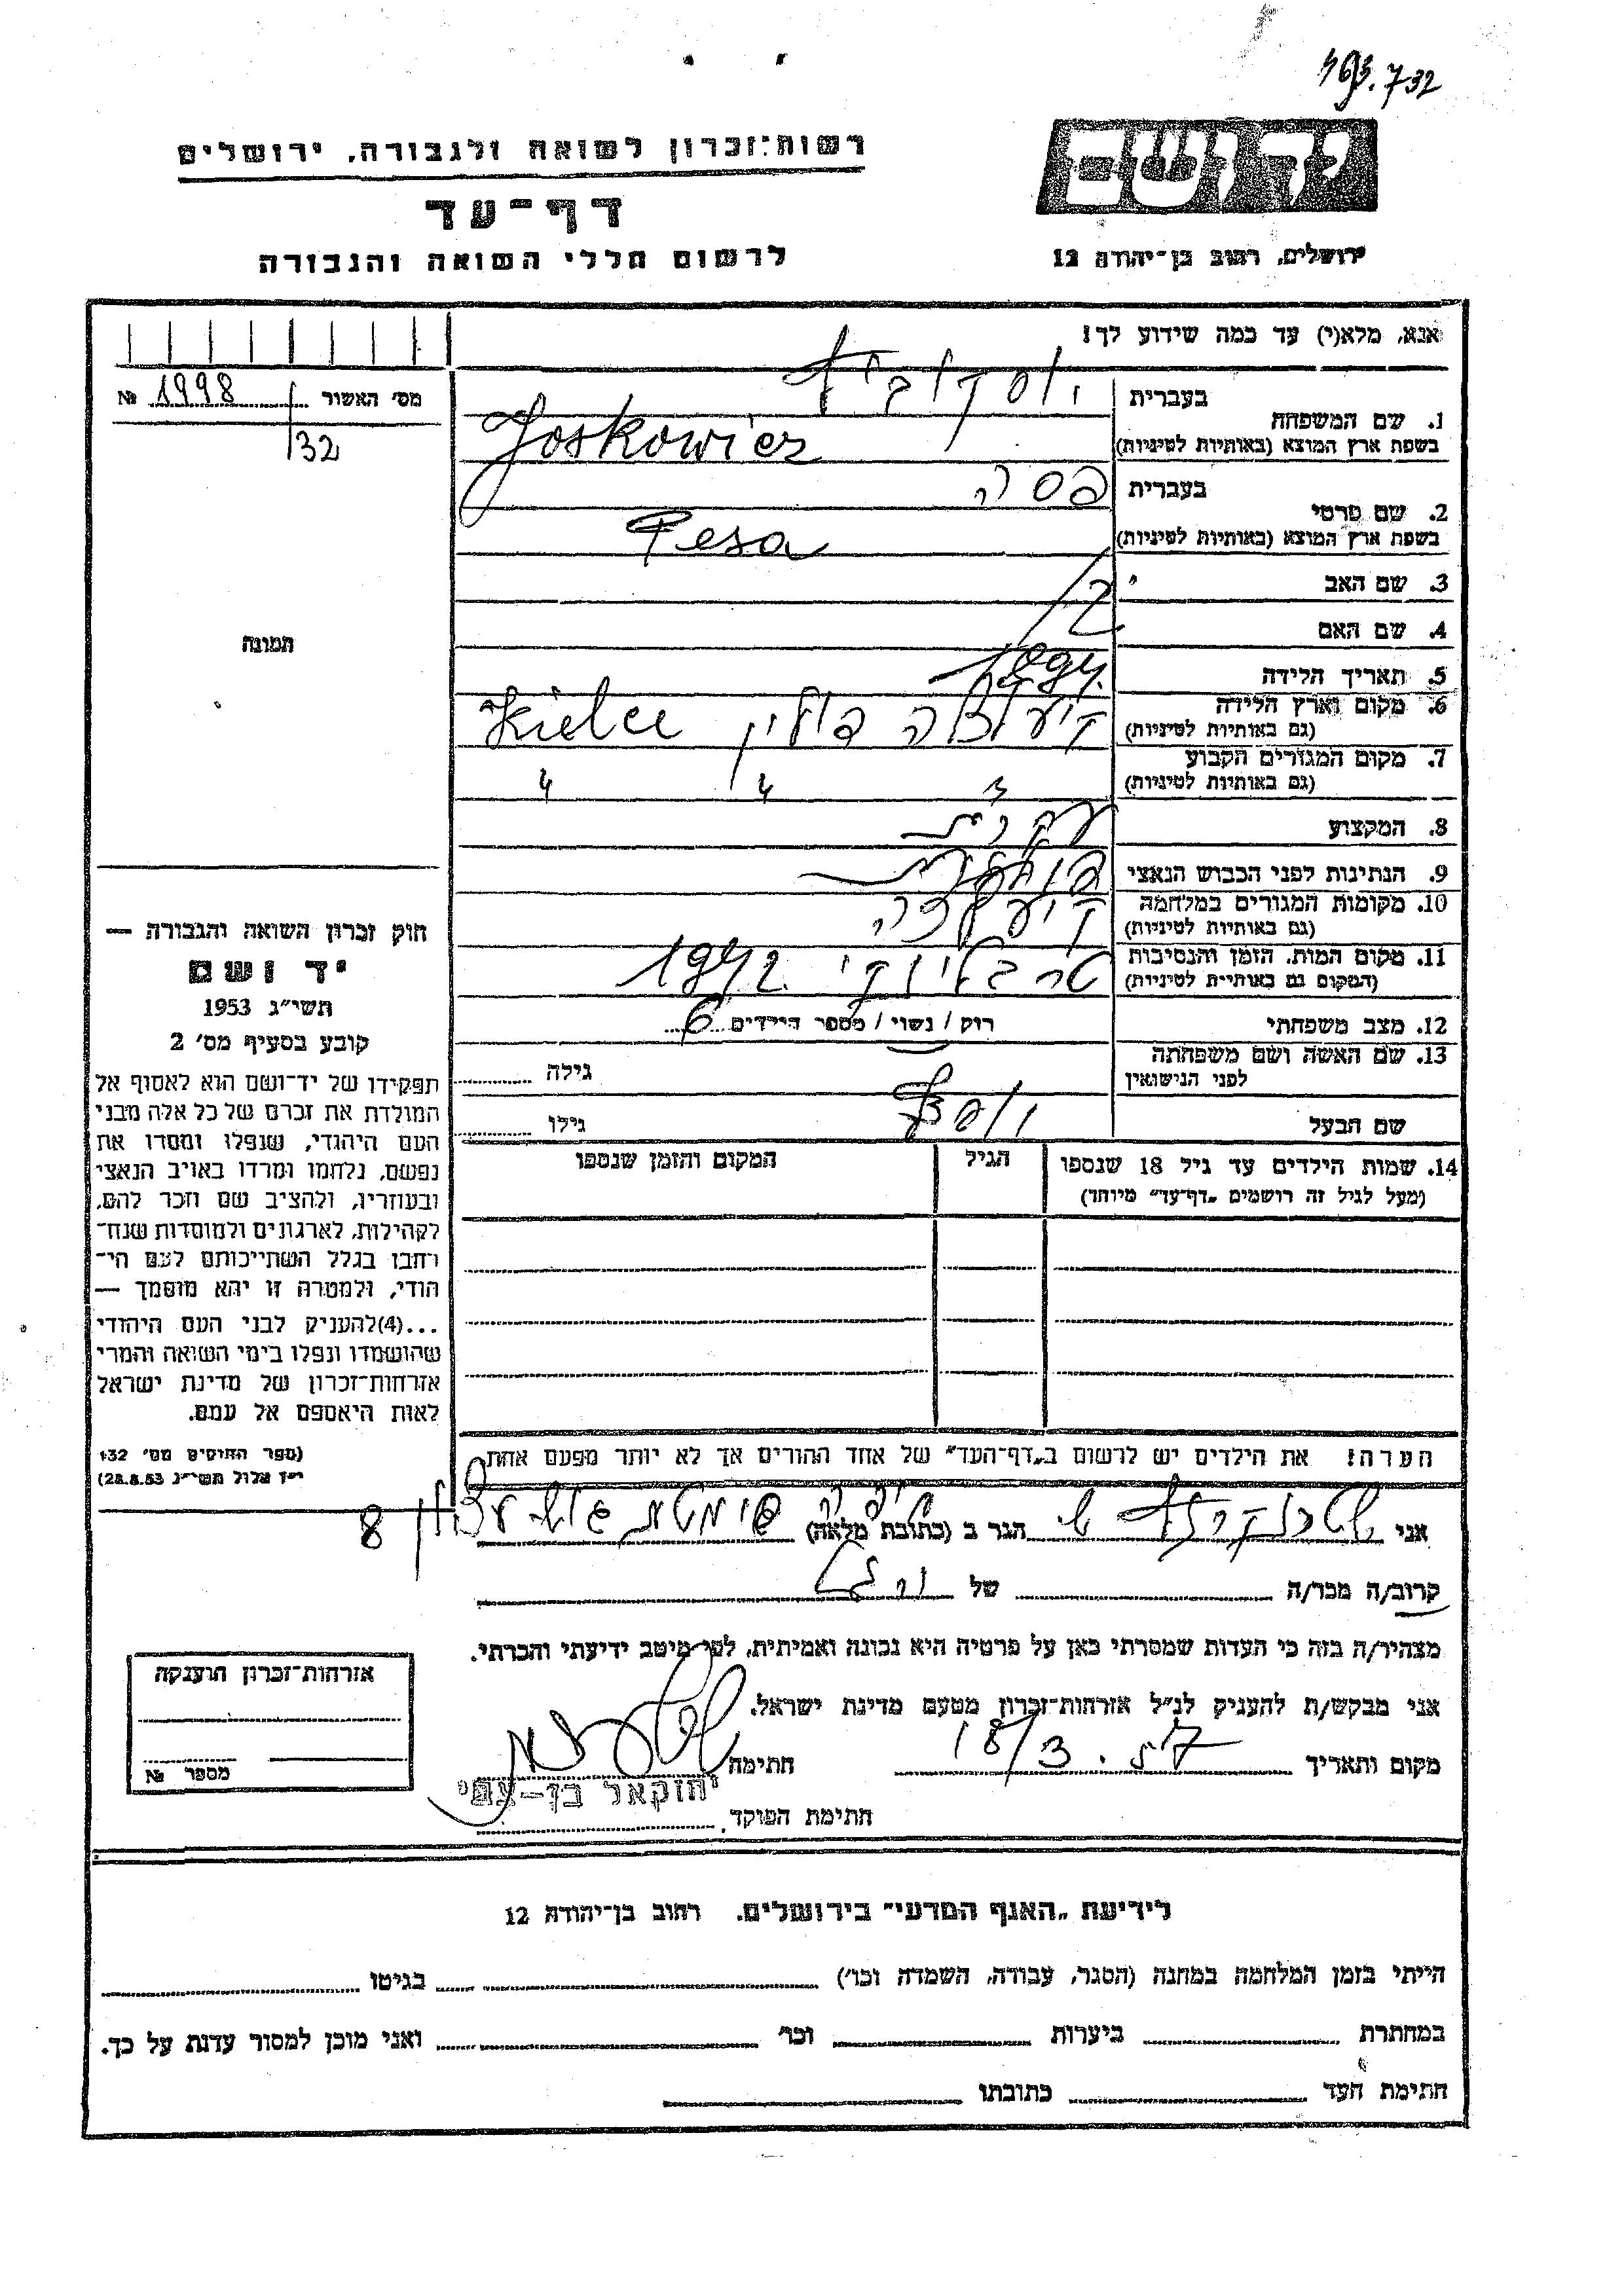 463.732
יד ושם
רשות־זכרון לשואה ולגבורה, ירושלים
דף־עד
לרשום חללי השואה והגבורה
ירושלים, רחוב בן־יהודה 12
אנא, מלא(י) עד כמה שידוע לך!
מס׳ האשור 1998 №
/32
תמונה
1. שם המשפחה
בעברית יוסקוביץ
בשפת ארץ המוצא (באותיות לטיניות) Joskowicz
2. שם פרטי
בעברית פסה
בשפת ארץ המוצא (באותיות לטיניות) Pesa
3. שם האב
4. שם האם
5. תאריך הלידה 1894
6. מקום וארץ הלידה
(גם באותיות לטיניות) קיעלצה פולין Kielce
7. מקום המגורים הקבוע
(גם באותיות לטיניות) " " "
8. המקצוע עקרת
9. הנתינות לפני הכבוש הנאצי פולנית
10. מקומות המגורים במלחמה
(גם באותיות לטיניות) קיעלצה
11. מקום המות, הזמן והנסיבות
(המקום גם באותיות לטיניות) טרבלינקי 1942
12. מצב משפחתי רוק / נשוי / מספר הילדים 6
13. שם האשה ושם משפחתה
לפני הנישואין גילה
שם הבעל יוסף גילו
14. שמות הילדים עד גיל 18 שנספו
(מעל לגיל זה רושמים „דף־עד” מיוחד)
הגיל
המקום והזמן שנספו
הערה! את הילדים יש לרשום ב„דף־העד” של אחד ההורים אך לא יותר מפעם אחת
חוק זכרון השואה והגבורה —
יד ושם
תשי״ג 1953
קובע בסעיף מס׳ 2
תפקידו של יד־ושם הוא לאסוף אל
המולדת את זכרם של כל אלה מבני
העם היהודי, שנפלו ומסרו את
נפשם, נלחמו ומרדו באויב הנאצי
ובעוזריו, ולהציב שם וזכר להם,
לקהילות, לארגונים ולמוסדות שנח־
רהבו בגלל השתייכותם לעם הי־
הודי, ולמטרה זו יהא מוסמך —
...(4)להעניק לבני העם היהודי
שהושמדו ונפלו בימי השואה והמרי
אזרחות־זכרון של מדינת ישראל
לאות היאספם אל עמם.
(ספר החוקים מס׳ 132
י״ז אלול תשי״ג 28.8.53)
אני הגר ב (כתובת מלאה) חיפה סימטת 8
קרוב/ה מכר/ה של
מצהיר/ה בזה כי העדות שמסרתי כאן על פרטיה היא נכונה ואמיתית, לפי מיטב ידיעתי והכרתי.
אני מבקש/ת להעניק לנ״ל אזרחות־זכרון מטעם מדינת ישראל.
מקום ותאריך 18/3.57 חתימה
יחזקאל בן-עמי
חתימת הפוקד
אזרחות־זכרון הוענקה
מספר №
לידיעת „האגף המדעי” בירושלים, רחוב בן־יהודה 12
הייתי בזמן המלחמה במחנה (הסגר, עבודה, השמדה וכו׳) בגיטו
במחתרת ביערות וכו׳ ואני מוכן למסור עדות על כך.
חתימת העד כתובתו